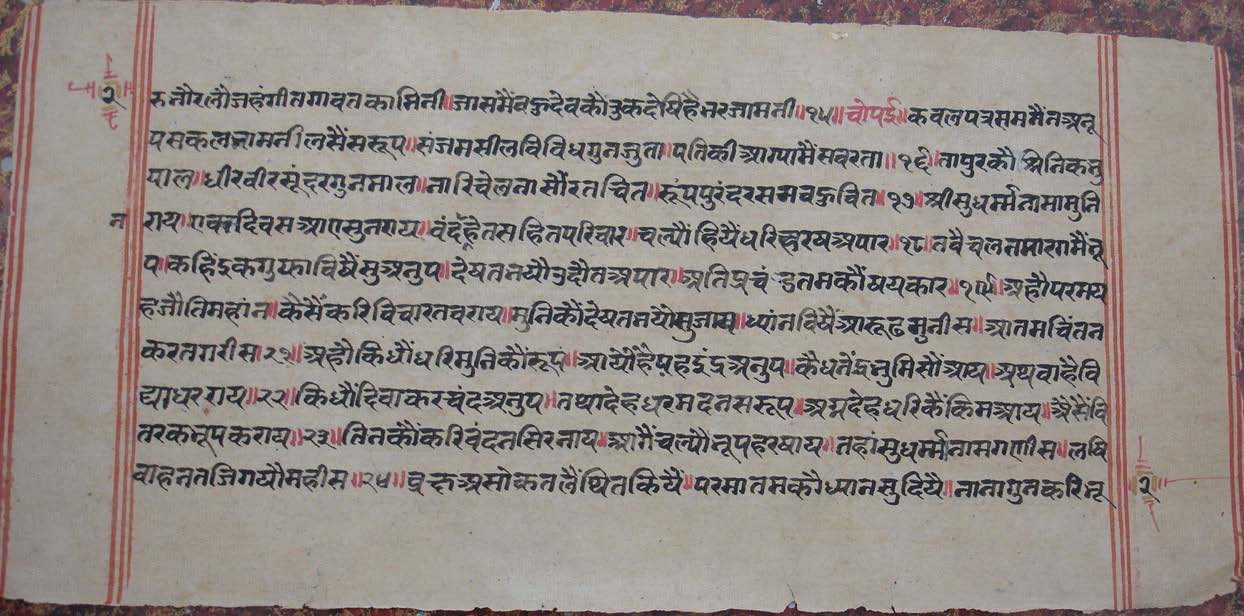 २
रुनौरलौजहंगीतगावतकामिनी॥जासमैंवहुदेवकौतुकदेषिहैनरजामनी॥१५॥चोपई॥कवलपत्रसममैंनअनू
पसकलजामनीलसैंसरूप॥संजमसीलविविधगुनजुता॥पतिकीआग्यामैंसवरता॥१६॥तापुरकौश्रेनिकनृ
पाल॥धीरवीरसुंदरगुनमाल॥नारिचेलनासौंरतचित॥रूंपपुरंदरसमवहुवित॥१७॥श्रीसुधर्म्मनामामुनि
न राय॥एकदिवसआएसुनराय॥वंदनहेतसहितपरिवार॥चल्यौंहियैंधरिहरषअपार॥१८॥तवैचलतमारगमैंनृ
प॥कहिंइकगुफाविषैंसुअनुप॥देषतनयौउदौतअपार॥अतिप्रचंडतमकौंषयकार॥१९॥अहौपरमय
हजौतिमहांन॥कैसैंकरिविचारतवराय॥मुनिकौंदेषतनयोसुजाय॥ध्यांनविषैंआरूढमुनीस॥आतमचिंतन
करतगरीस॥२१॥अहौकिधौंधरिमुनिकौंरूप॥आयौंहैंएहइंद्रअनुप॥कैधनेंद्रनुमिसौंआय॥अथवाहैवि
द्याधरराय॥२२॥किधौंदिवाकरचंदअनुप॥तथादेहधरमदनसरूप॥अग्रदेहधरिकैंकिमआय॥अैसैंवि
तरकनृपकराय॥२३॥तिनकौंकरिवंदनसिरनाय॥आगैंचल्यौंनृपहरषाय॥तहांसुधर्म्मनामगणीस॥लषि
वाहनतजिगयौमहीस॥२४॥वृक्षअसोकतलैंथितकियैं॥परमातमकौध्यानसुदियै॥नानागुनकरिनृ
२